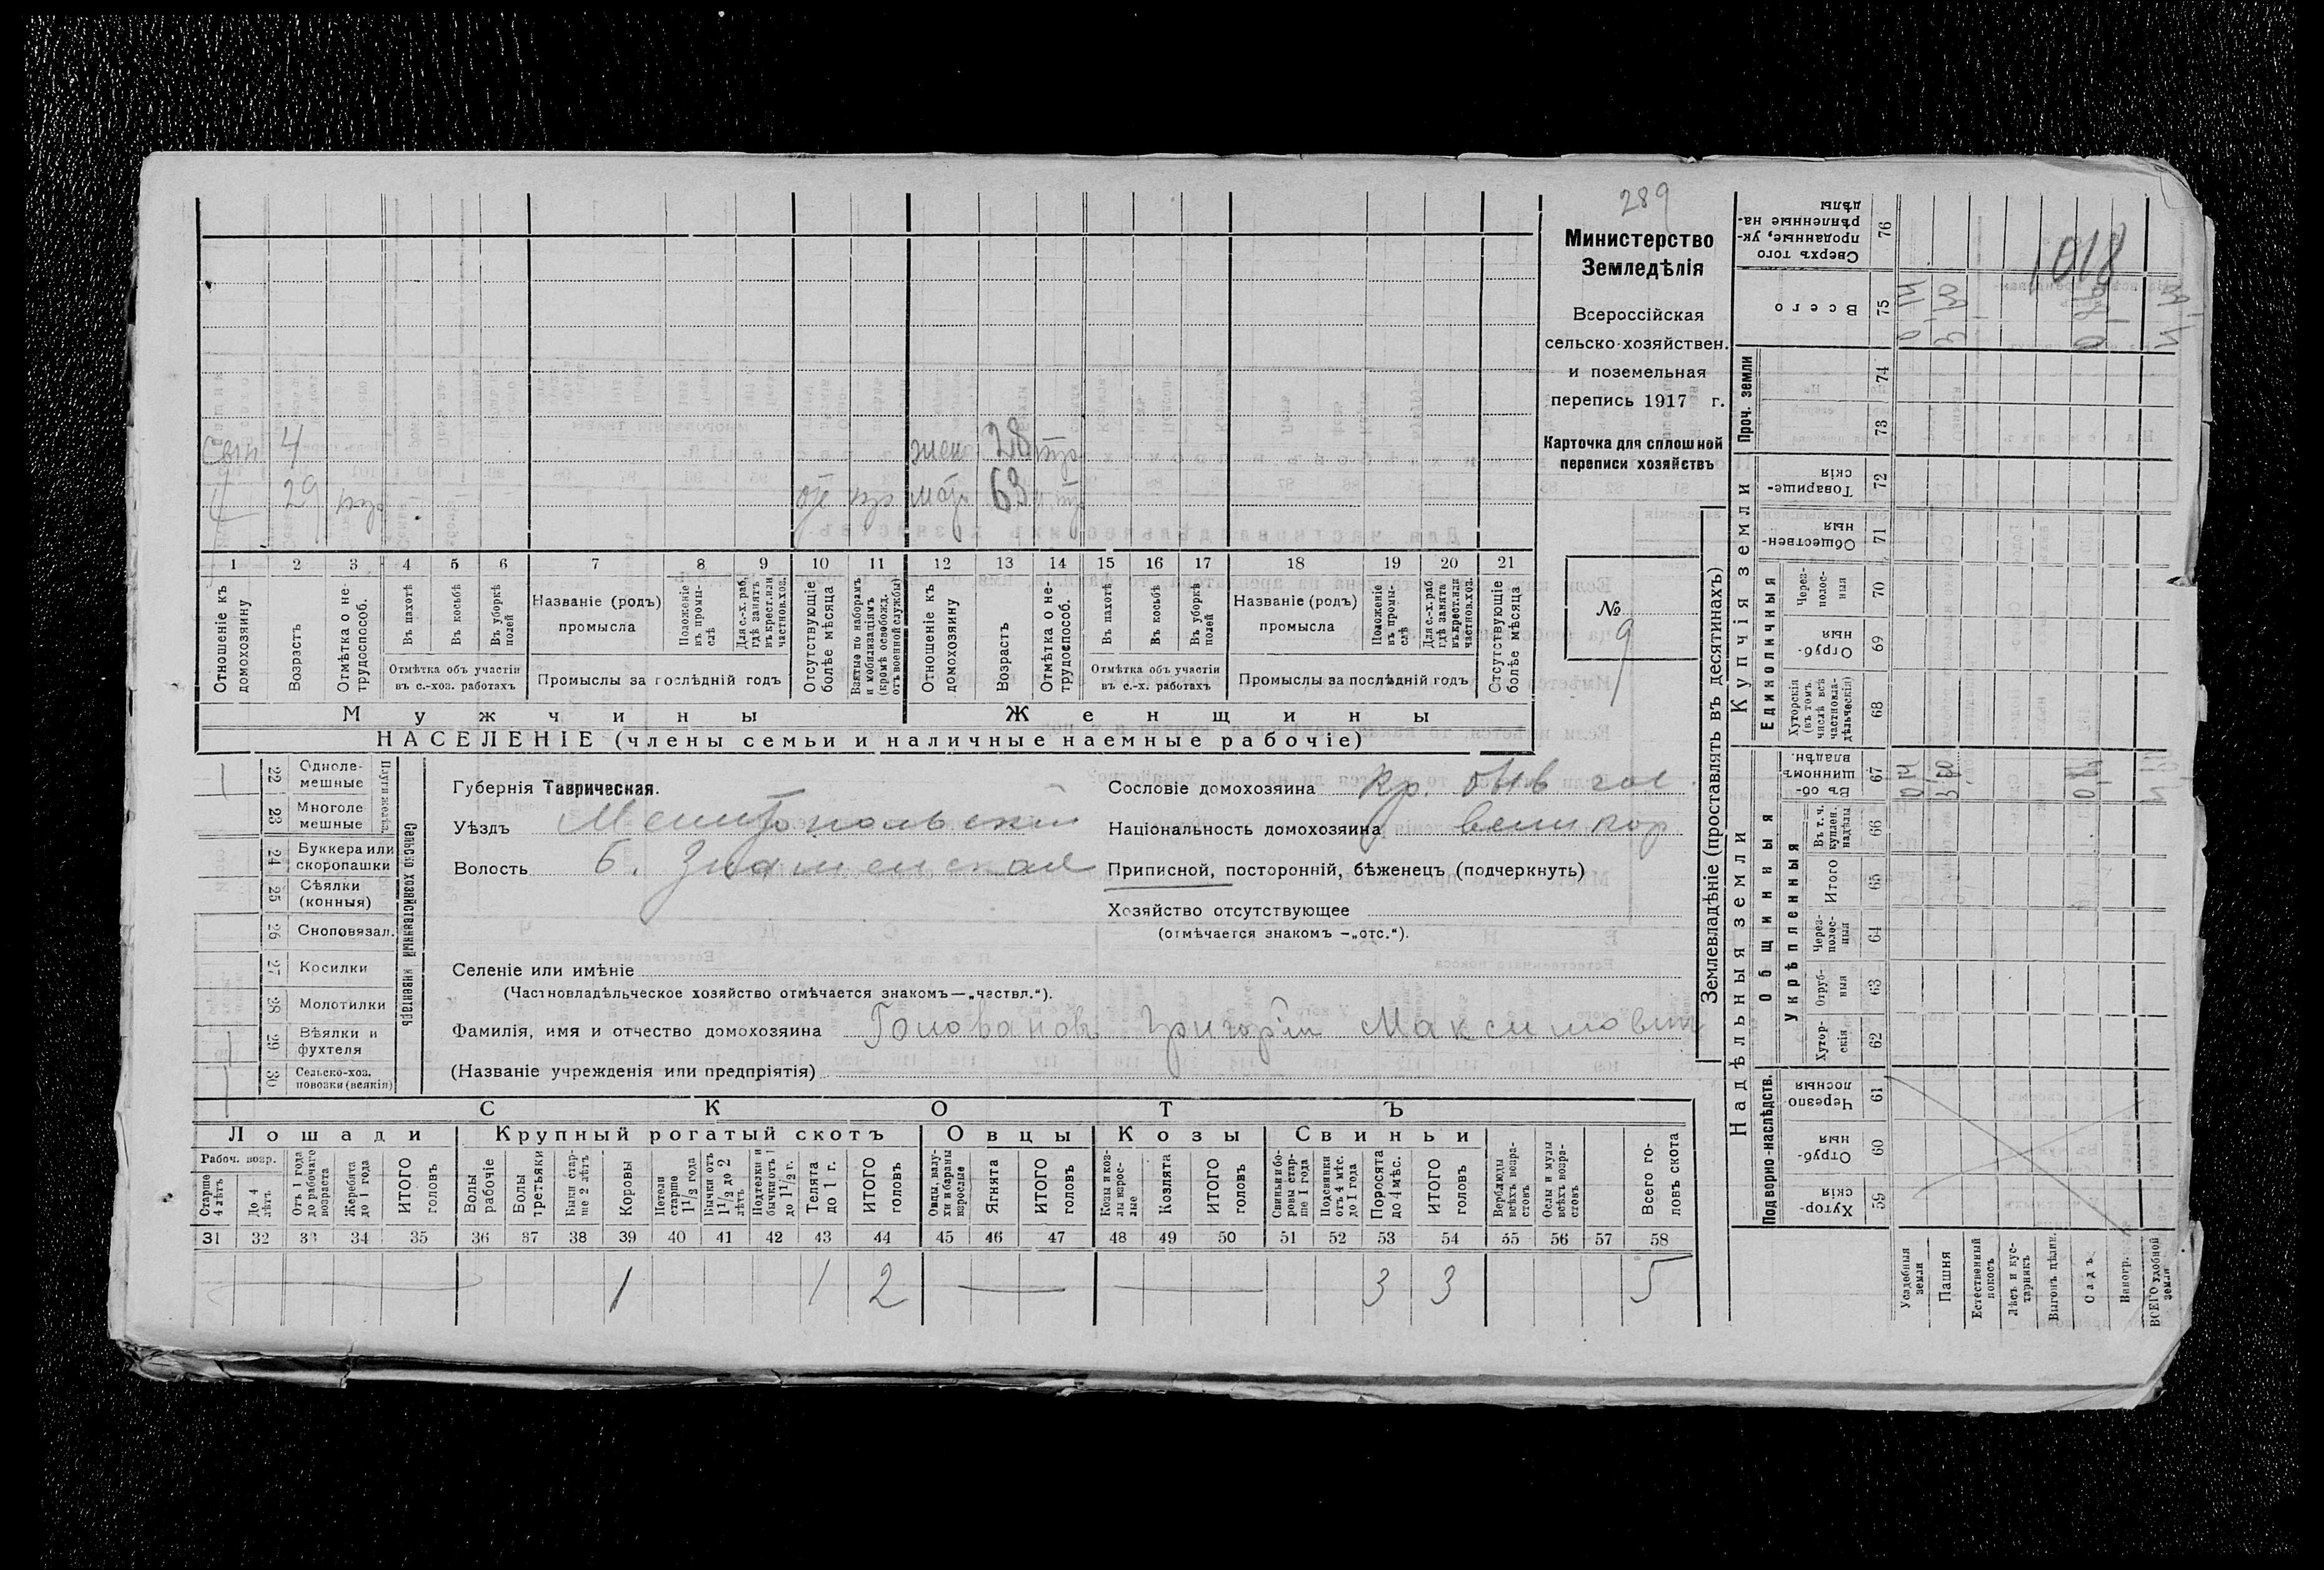 289
Министерство
Земледѣлія
Всероссійская
сельско-хозяйствен.
и поземельная
перепись 1917 г.
Карточка для сплошной
переписи хозяйствъ
№
9
1018
сын 4 жена 28
29 мать 63
1 2 3 4 5 6 7 8 9 10 11 12 13 14 15 16 17 18 19 20 21
Отношеніе къ домохозяину
Возрастъ
Отмѣтка о нетрудоспособ.
Въ пахотѣ
Въ косьбѣ
Въ уборкѣ полей
Отмѣтка объ участіи въ с.-хоз. работахъ
Названіе (родъ) промысла
Положеніе въ промыслѣ
Для с.-х. раб. гдѣ занятъ въ крест. или частнов. хоз.
Промыслы за послѣдній годъ
Отсутствующіе болѣе мѣсяца
Взятые по наборамъ и мобилизаціямъ (кромѣ освобожд. отъ военной службы)
Отношеніе къ домохозяину
Возрастъ
Отмѣтка о нетрудоспособ.
Въ пахотѣ
Въ косьбѣ
Въ уборкѣ полей
Отмѣтка объ участіи въ с.-х. работахъ
Названіе (родъ) промысла
Положеніе въ промыслѣ
Для с.-х. раб гдѣ занята въ крест. или частнов. хоз.
Промыслы за послѣдній годъ
Отсутствующіе болѣе мѣсяца
Мужчины Женщины
НАСЕЛЕНІЕ (члены семьи и наличные наемные рабочіе)
22 Однолемешные
23 Многолемешные
Плуги желѣз.
24 Буккера или скоропашки
25 Сѣялки (конныя)
26 Сноповязал.
27 Косилки
28 Молотилки
29 Вѣялки и фухтеля
30 Сельско-хоз. повозки (всякія)
Сельско хозяйственный инвентарь
Губернія Таврическая.
Уѣздъ Мелитопольскій
Волость Б. Знаменская
Сословіе домохозяина Кр. быв гос
Національность домохозяина великор
Приписной, посторонній, бѣженецъ (подчеркнуть)
Хозяйство отсутствующее
(отмѣчается знакомъ —„отс.“).
Селеніе или имѣніе
(Частновладѣльческое хозяйство отмѣчается знакомъ—„частвл.“).
Фамилія, имя и отчество домохозяина Голованов Григорій Максимович
(Названіе учрежденія или предпріятія)
СКОТЪ
Лошади Крупный рогатый скотъ Овцы Козы Свиньи
Рабоч. возр.
Старше 4 лѣтъ
До 4 лѣтъ
Отъ 1 года до рабочаго возраста
Жеребята до 1 года
ИТОГО головъ
Волы рабочіе
Волы третьяки
Быки старше 2 лѣтъ
Коровы
Нетели старше 1½ года
Бычки отъ 1½ до 2 лѣтъ
Подтелки и бычки отъ 1 до 1½ г.
Телята до 1 г.
ИТОГО головъ
Овцы, валухи и бараны взрослые
Ягнята
ИТОГО головъ
Козы и козлы взрослые
Козлята
ИТОГО головъ
Свиньи и боровы старше 1 года
Подсвинки отъ 4 мѣс. до 1 года
Поросята до 4 мѣс.
ИТОГО головъ
Верблюды всѣхъ возрастовъ
Ослы и мулы всѣхъ возрастовъ
Всего головъ скота
31 32 33 34 35 36 37 38 39 40 41 42 43 44 45 46 47 48 49 50 51 52 53 54 55 56 57 58
1 1 2 3 3 5
Землевладѣніе (проставлять въ десятинахъ)
Надѣльныя земли Купчія земли Проч. земли
Подворно-наслѣдств.
Общинныя
Укрѣпленныя
Единоличныя
59 Хуторскія
60 Отрубныя
61 Черезполосныя
62 Хуторскія
63 Отрубныя
64 Черезполосныя
65 Итого
66 Въ т. ч. куплен. надѣлы
67 Въ общинномъ владѣн.
68 Хуторскія (въ томъ числѣ всѣ частновладѣльческія)
69 Отрубныя
70 Черезполосныя
71 Общественныя
72 Товарищескія
73
74
75 Всего
76 Сверхъ того проданные, укрѣпленные надѣлы
Усадебныя земли
Пашня
Естественный покосъ
Лѣсъ и кустарникъ
Выгонъ цѣлин.
Садъ
Виногр.
ВСЕГО удобной земли